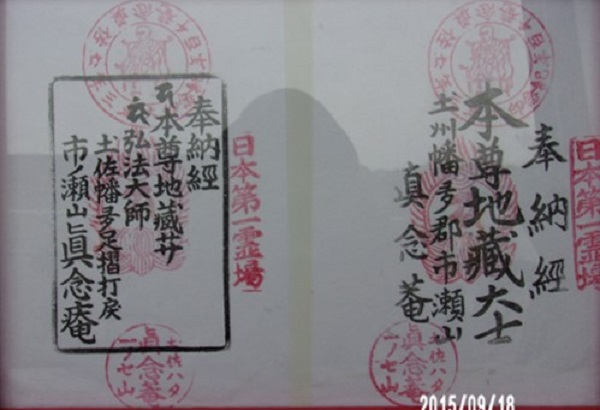 日本第一霊場
奉納經
本尊地藏大士
土州幡多郡市瀬山
真念菴
土佐ハタ
眞念菴
一ノセ山
日本第一霊場
奉納經
本尊地藏𦬇
弘法大師
土佐幡多足摺打戻
市ノ瀬山眞念庵
土佐ハタ
眞念菴
一ノセ山
2015/09/18